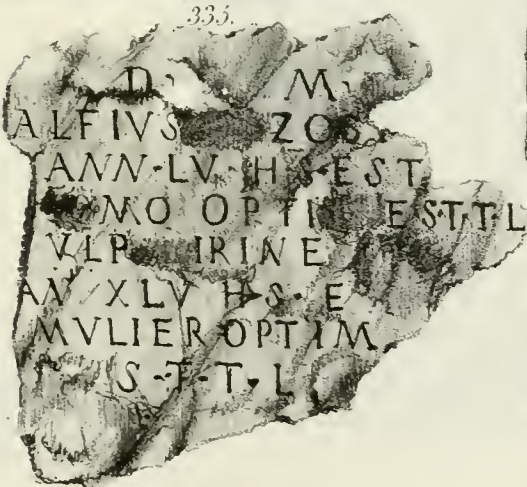 335.
D · M ·
ALFIVS ZOS
ANN · LV · H S · EST
MO OPTI EST · T · L
VLP IRINE
AN XLV H · S · E
MVLIER OPTIM
S · T · T · L